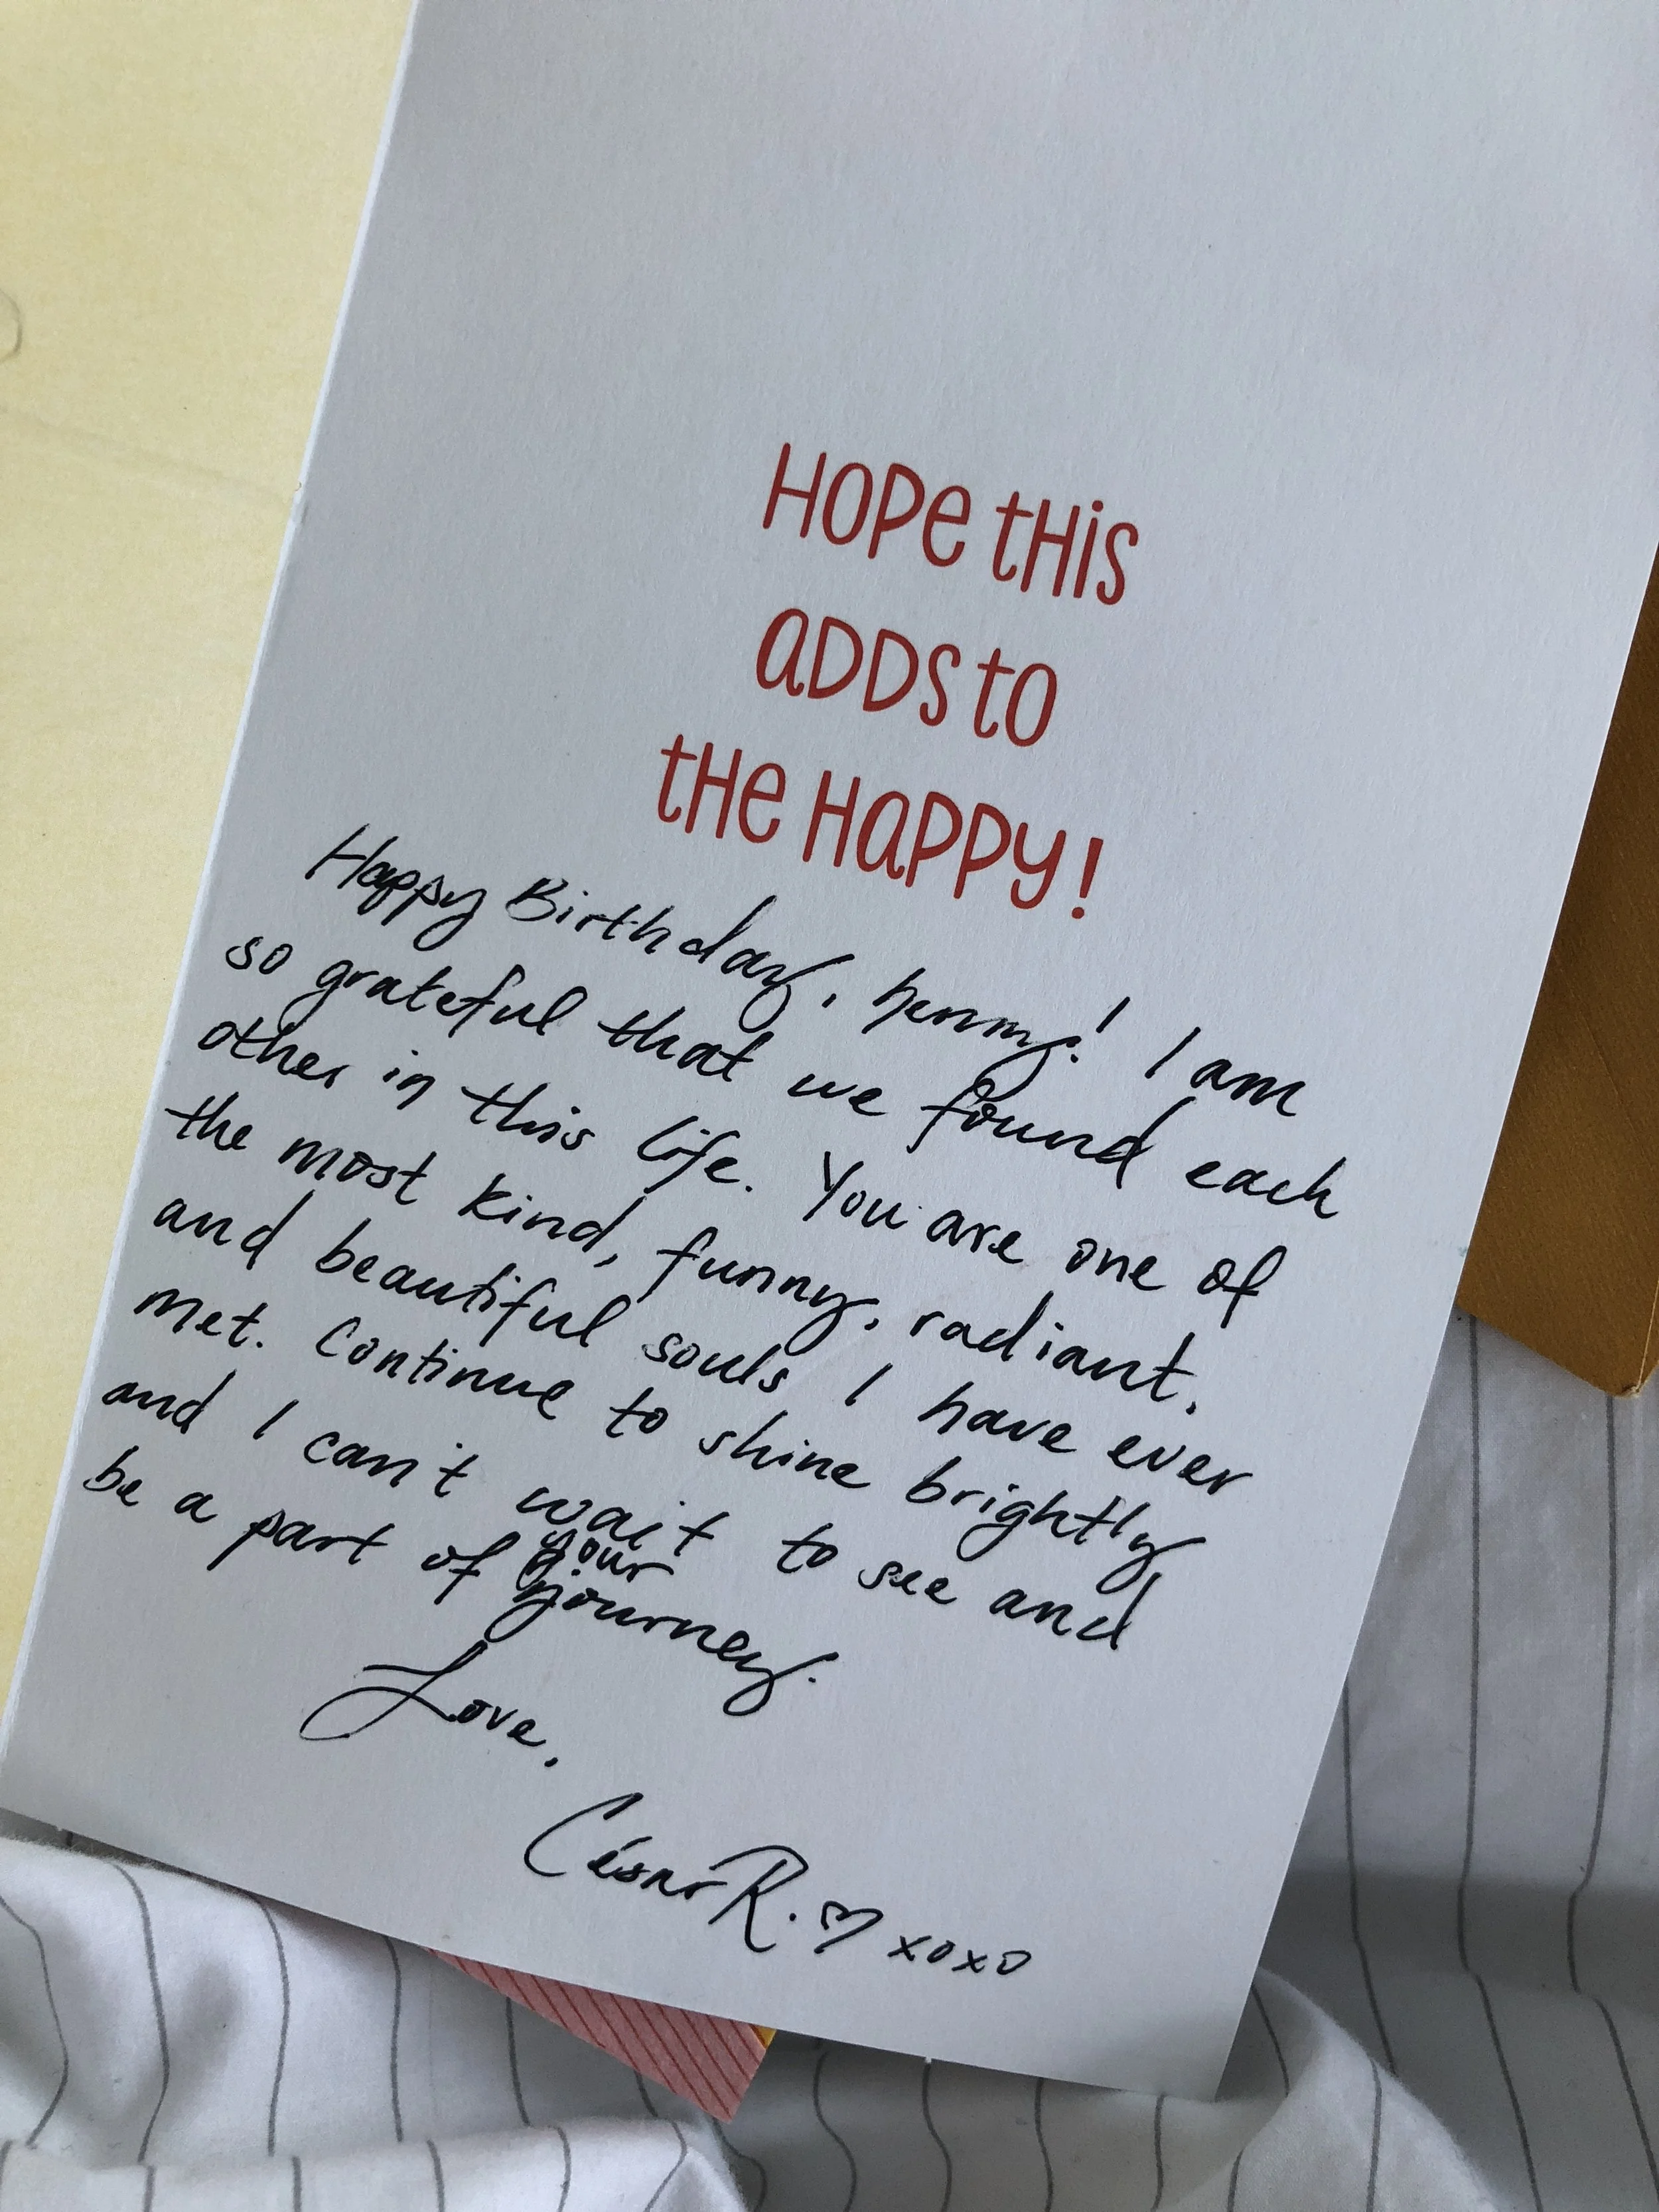 HOPE tHis
aDDS tO
tHe HaPPy!
Happy Birthday, henny! I am
so grateful that we found each
other in this life. You are one of
the most kind, funny, radiant,
and beautiful souls I have ever
met. Continue to shine brightly
and I can't wait to see and
be a part of your
journey.
Love,
César R. ♡ xoxo